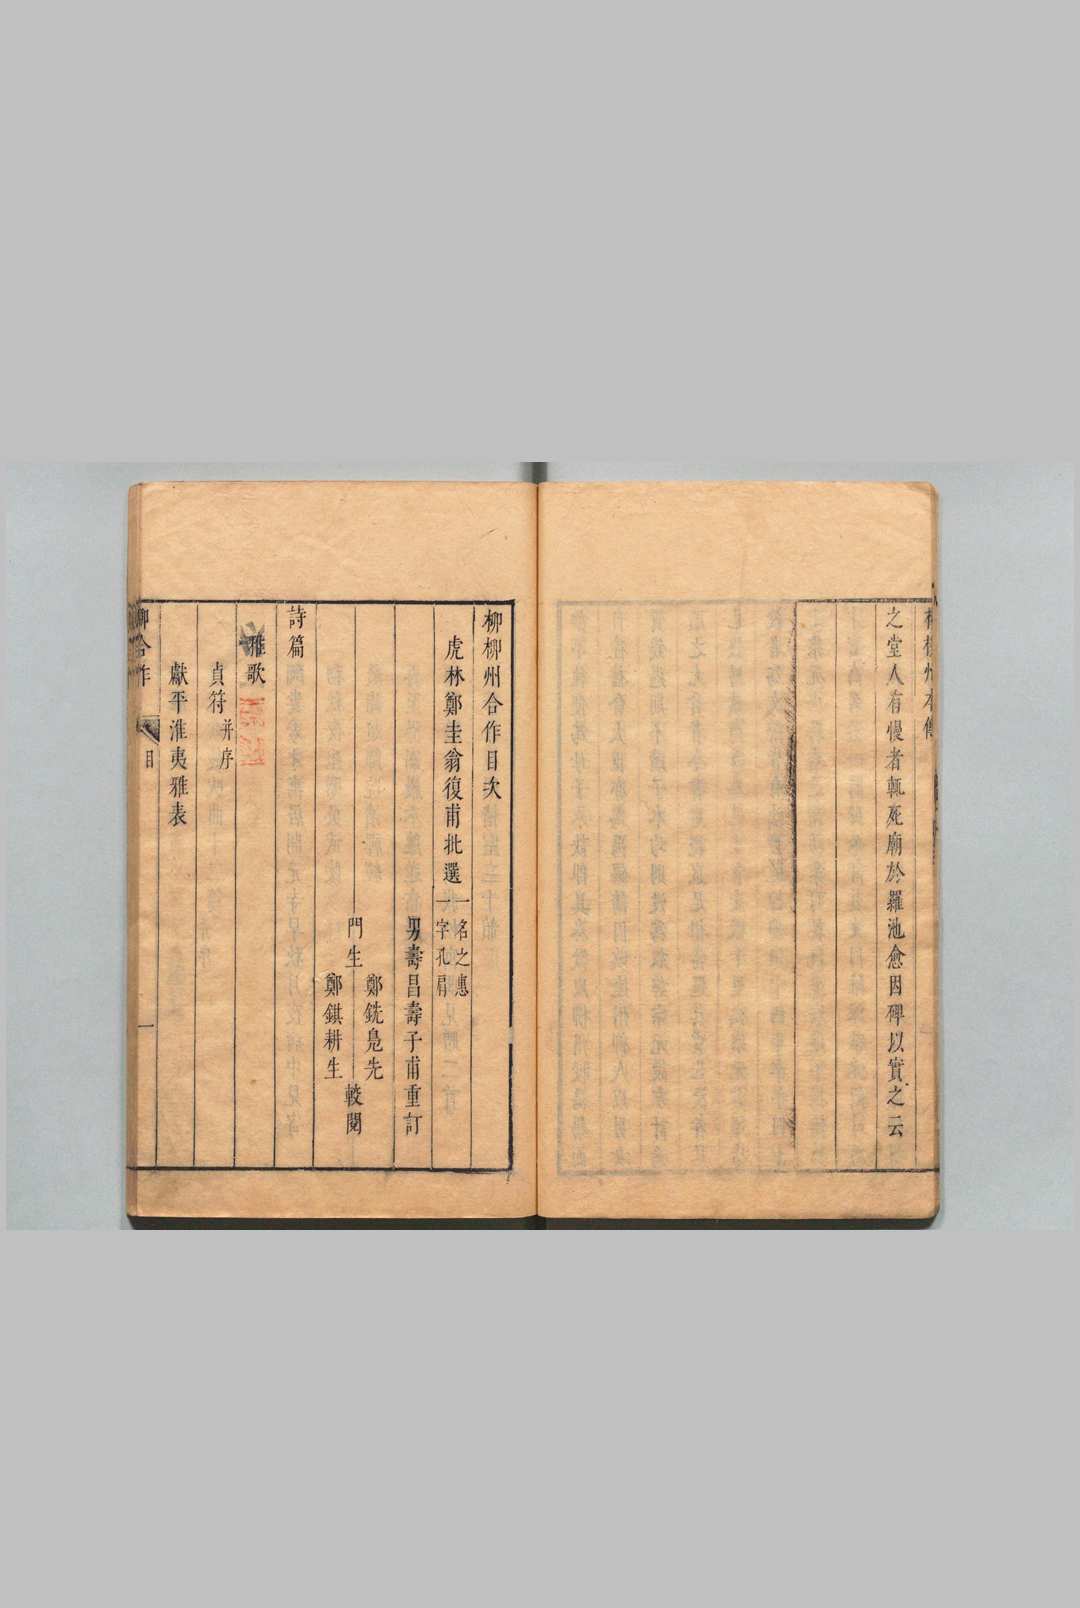 之堂人有慢者輒死廟於羅池愈因碑以實之云
柳柳州合作目次
虎林鄭圭翁復甫批選
一名之惠
一字孔肩
男壽昌壽子甫重訂
門生
鄭銑晃先
鄭錤耕生
較閱
詩篇
雅歌
貞符并序
獻平淮夷雅表
柳合作
目
一